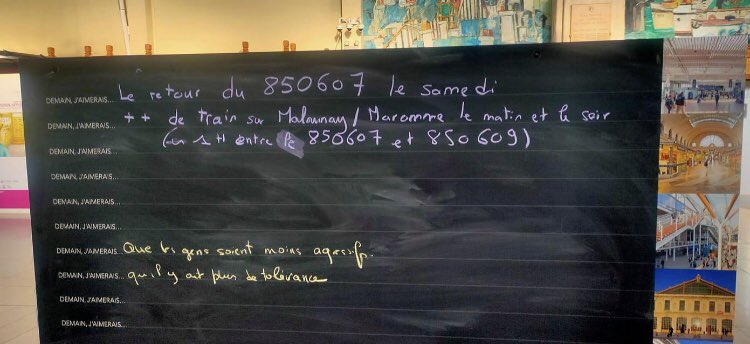 DEMAIN, J'AIMERAIS... Le retour du 850607 le samedi
DEMAIN, J'AIMERAIS... ++ de train sur Malaunay / Maromme le matin et le soir
DEMAIN, J'AIMERAIS... 1H entre le 850607 et 850609)
DEMAIN, J'AIMERAIS...
DEMAIN, J'AIMERAIS...
DEMAIN, J'AIMERAIS...
DEMAIN, J'AIMERAIS... Que les gens soient moins agressifs.
DEMAIN, J'AIMERAIS... qu'il y ait plus de tolérance
DEMAIN, J'AIMERAIS...
DEMAIN, J'AIMERAIS...